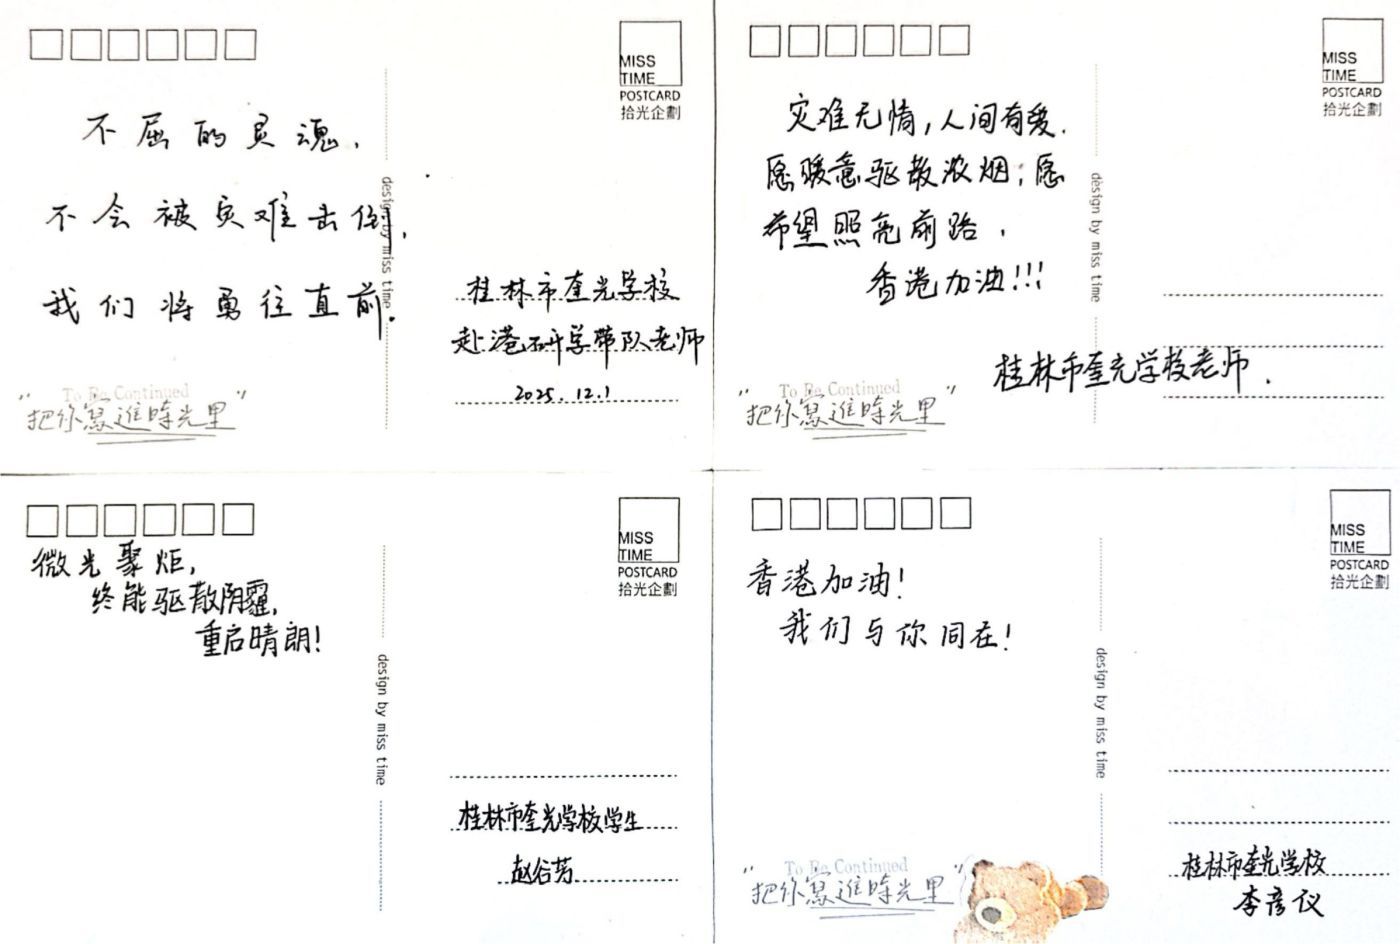 MISS
TIME
POSTCARD
拾光企劃
不屈的灵魂，
不会被灾难击倒，
我们将勇往直前．
design by miss time
桂林市奎光学校
赴港研学带队老师
2025.12.1
To Be Continued
"把你寫進時光里"
MISS
TIME
POSTCARD
拾光企劃
灾难无情，人间有爱．
愿暖意驱散浓烟；愿
希望照亮前路．
香港加油!!!
design by miss time
桂林市奎光学校老师．
To Be Continued
"把你寫進時光里"
MISS
TIME
POSTCARD
拾光企劃
微光聚炬，
终能驱散阴霾，
重启晴朗!
design by miss time
桂林市奎光学校学生
赵谷芳
MISS
TIME
POSTCARD
拾光企劃
香港加油!
我们与你同在!
design by miss time
To Be Continued
"把你寫進時光里"
桂林市奎光学校
李彦仪